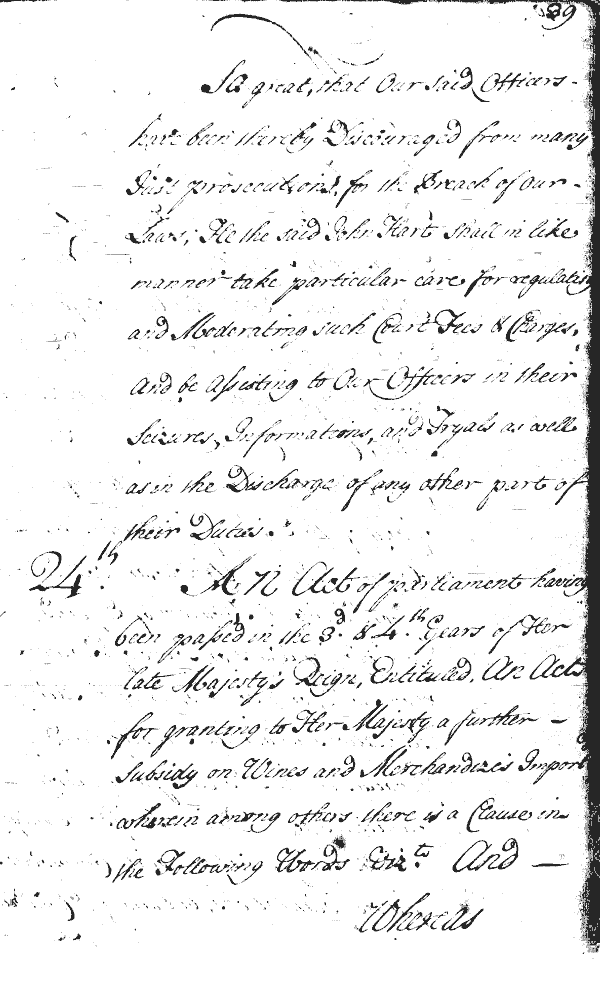 39
So great, that Our said Officers -
have been thereby Discouraged from many
Just prosecutions, for the Breach of our -
Laws; He the said John Hart shall in like
manner take particular care for regulating
and Moderating such Court Fees & Charges,
And be Assisting to Our Officers in their
Seizures, Informations, and Tryals as well
as in the Discharge of any other part of
their Duties.
24th. AN Act of parliament having
been passed in the 3d. & 4th. Years of Her
late Majesty's Reign, Entituled, An Act
for granting to Her Majesty a further -
Subsidy on Wines and Merchandizes Import
wherein among others there is a Clause in
the Following Words Vizt. And -
Whereas